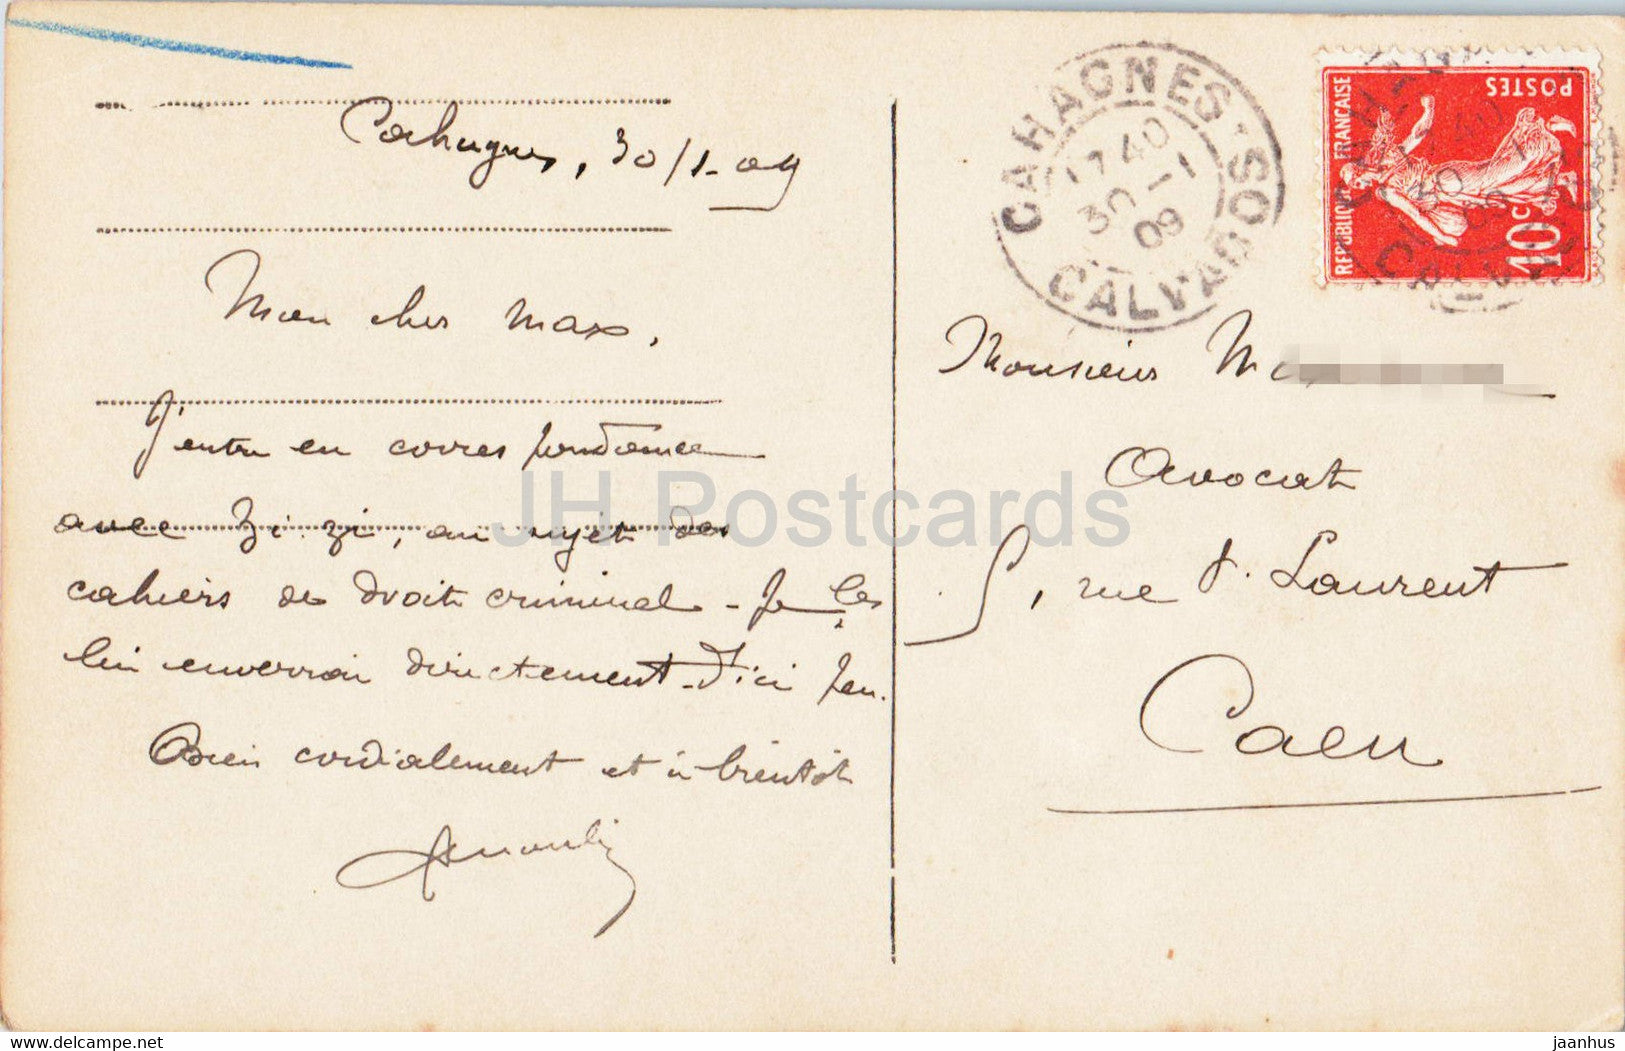 Cahagnes, 30/1-09
Mon cher Max,
J'entre en correspondance
avec Zi zi, au sujet des
cahiers de droit criminel - Je les
lui enverrai directement d'ici peu.
Bien cordialement et à bientôt
CAHAGNES · CALVADOS
17 40
30 - 1
09
REPUBLIQUE FRANÇAISE
POSTES
10c
Monsieur
Avocat
5, rue St. Laurent
Caen
JH Postcards
www.delcampe.net
jaanhus